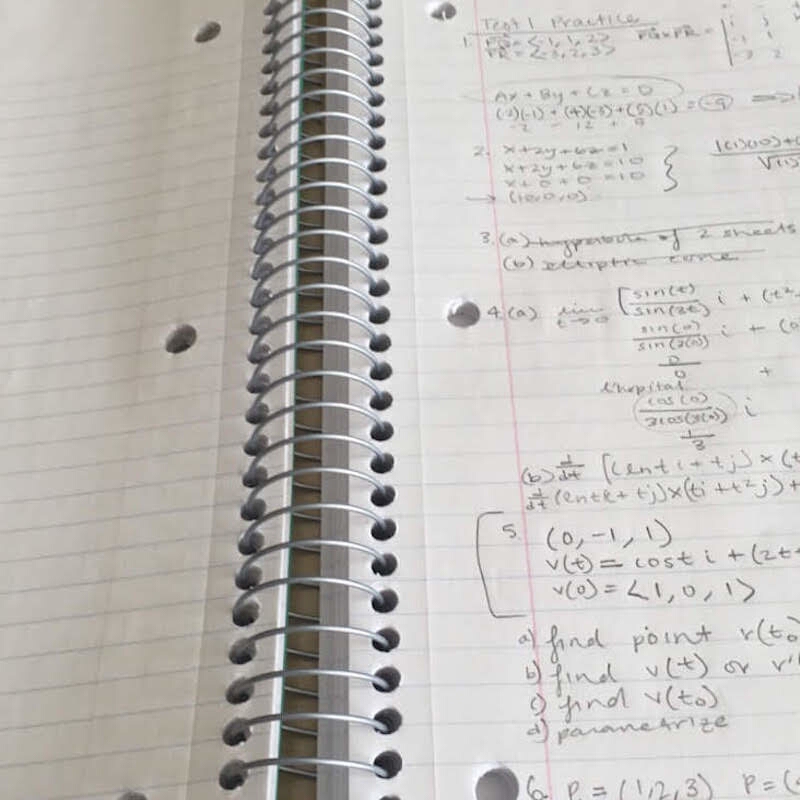 Test 1 Practice
1. PQ = <-1, 1, 2> PQ x PR = | i j
PR = <-3, 2, 3> -1 1
-3 2
Ax + By + Cz = 0
(2)(-1) + (4)(-3) + (5)(1) = -9 =>
-2 - 12 +
2. x+2y+6z=1
x+2y+6z=10
x+0+0=10
→ (10,0,0)
3. (a) hyperbola of 2 sheets
(b) elliptic cone
4. (a) lim t→0 [ sin(t)/sin(3t) i + (t²
sin(0)/sin(3(0)) i + (0
0/0 +
L'hopital
cos(0)/3cos(3(0)) i
1/3
(b) d/dt [(lnt i + tj) × (t
d/dt (lnti + tj)×(ti + t²j) +
5. (0, -1, 1)
v(t) = cost i + (2t
v(0) = <1, 0, 1>
a) find point r(t₀
b) find v(t) or r'
c) find v(t₀)
d) parametrize
6. P = (1,2,3) P = (